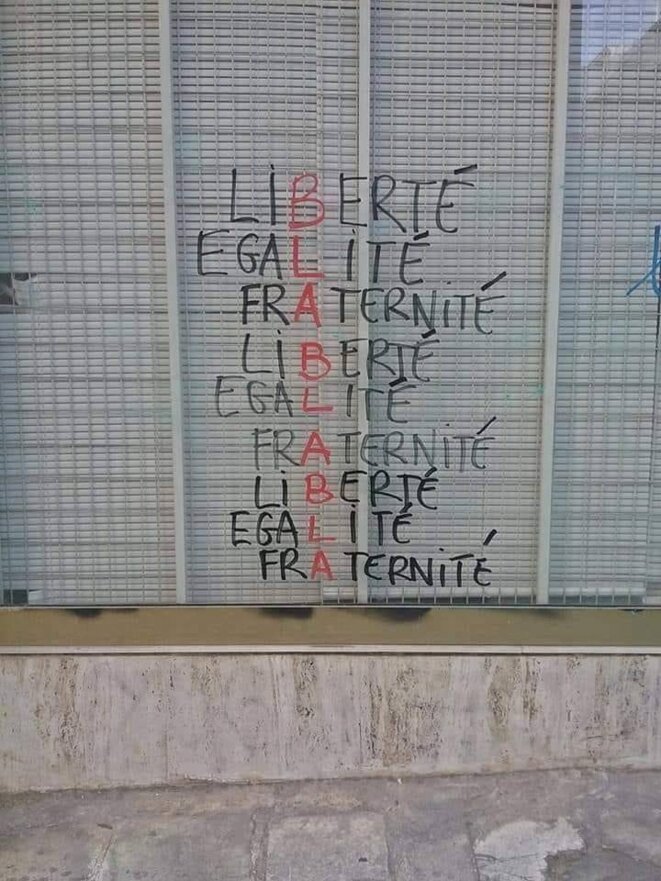 LIBERTÉ
EGALITÉ
FRATERNITÉ
LIBERTÉ
EGALITÉ
FRATERNITÉ
LIBERTÉ
EGALITÉ
FRATERNITÉ